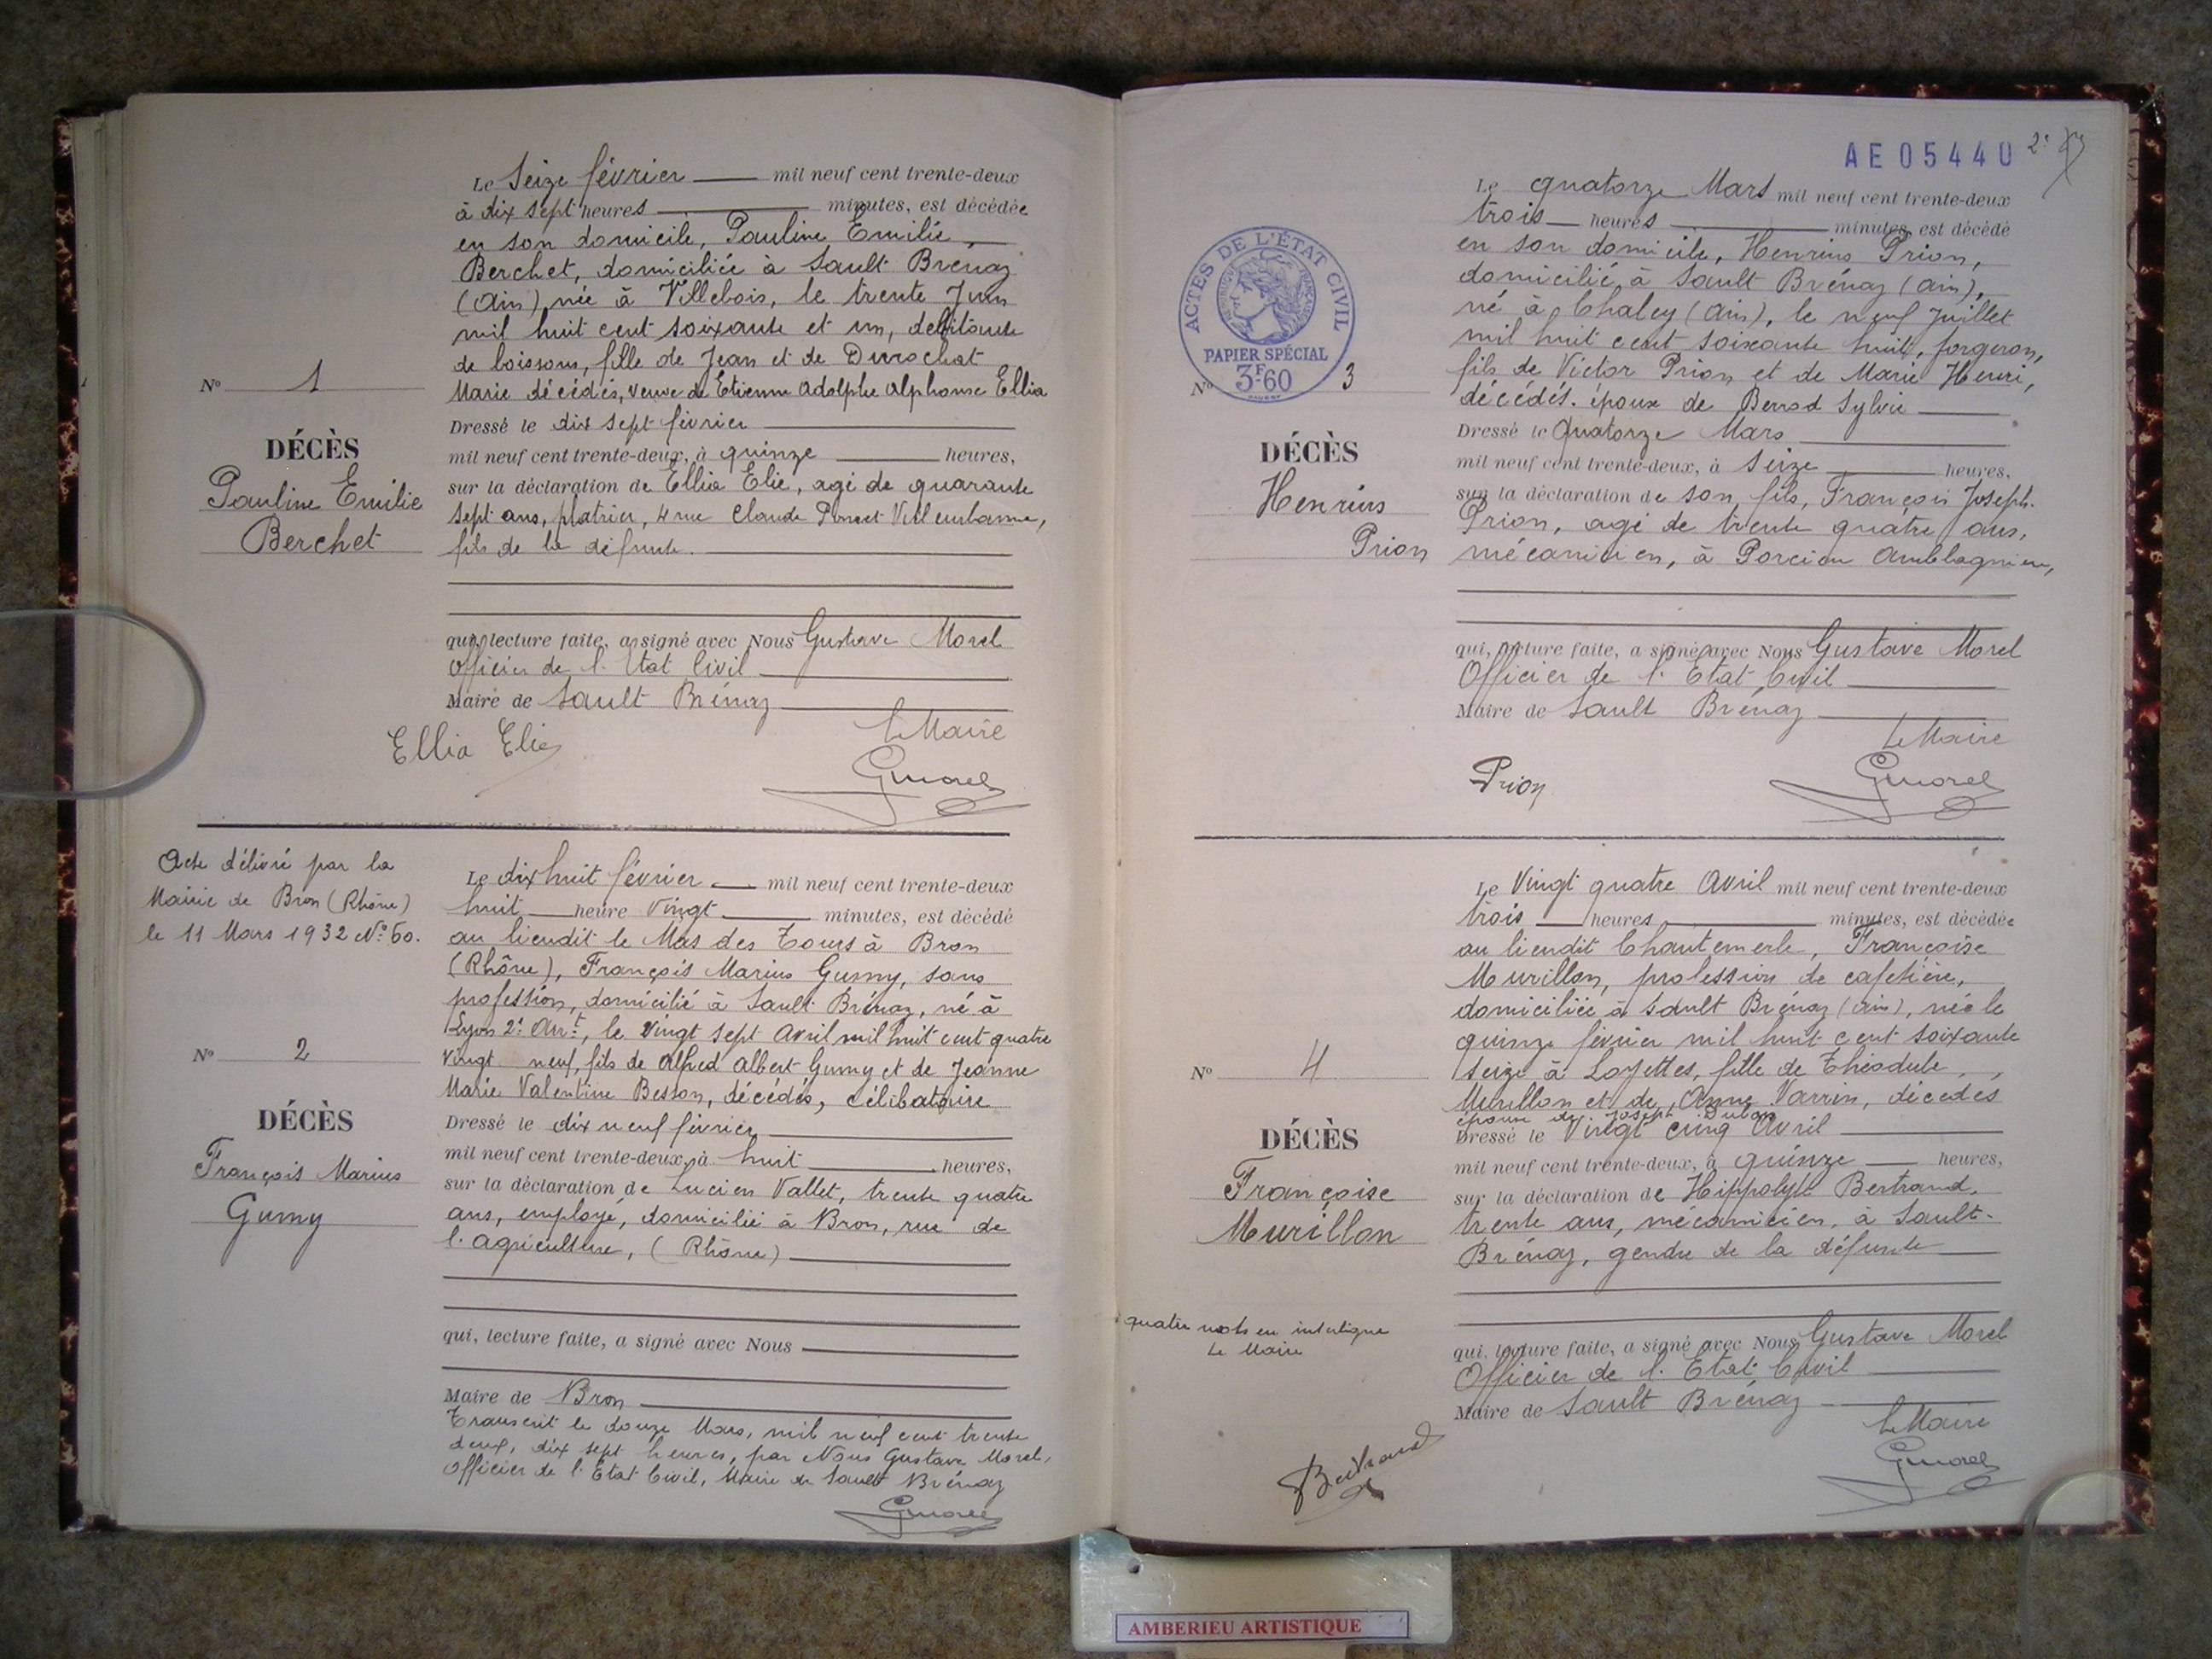 Le Seize février mil neuf cent trente-deux
à dix sept heures minutes, est décédée
en son domicile, Pauline Emilie
Berchet, domiciliée à Sault Brénaz
(Ain), née à Villebois, le trente Juin
mil huit cent soixante et un, débitante
de boissons, fille de Jean et de Durochat
Marie décédés, veuve de Etienne Adolphe Alphonse Ellia
Nº 1
DÉCÈS
Pauline Emilie
Berchet
Dressé le dix sept février
mil neuf cent trente-deux, à quinze heures,
sur la déclaration de Ellia Elie, agé de quarante
sept ans, platrier, 4 rue Claude Villeurbanne,
fils de la défunte.
qui, lecture faite, a signé avec Nous Gustave Morel
Officier de l'Etat Civil
Maire de Sault Brénaz
Le Maire
Ellia Elie
GMorel
Acte délivré par la
Mairie de Bron (Rhône)
le 11 Mars 1932 Nº 60.
Le dix huit février mil neuf cent trente-deux
huit heure vingt minutes, est décédé
au lieudit le Mas des Tours à Bron
(Rhône), François Marius Gumy, sans
profession, domicilié à Sault Brénaz, né à
Lyon 2e Arrt, le vingt sept Avril mil huit cent quatre
vingt neuf, fils de Alfred Albert Gumy et de Jeanne
Marie Valentine Besson, décédés, célibataire
Nº 2
DÉCÈS
François Marius
Gumy
Dressé le dix neuf février
mil neuf cent trente-deux, à huit heures,
sur la déclaration de Lucien Vallet, trente quatre
ans, employé, domicilié à Bron, rue de
l'agriculture, (Rhône)
qui, lecture faite, a signé avec Nous
Maire de Bron
Transcrit le douze Mars, mil neuf cent trente
deux, dix sept heures, par Nous Gustave Morel,
Officier de l'Etat Civil, Maire de Sault Brénaz
GMorel
AE05440
2e
Le quatorze Mars mil neuf cent trente-deux
trois heures minutes, est décédé
en son domicile, Henrius Prion,
domicilié à Sault Brénaz (Ain),
né à Chaley (Ain), le neuf Juillet
mil huit cent soixante huit, forgeron,
fils de Victor Prion et de Marie Henri,
décédés. époux de Berrod Sylvie
ACTES DE L'ÉTAT CIVIL
PAPIER SPÉCIAL
3F60
Nº 3
DÉCÈS
Henrius
Prion
Dressé le Quatorze Mars
mil neuf cent trente-deux, à seize heures,
sur la déclaration de son fils, François Joseph.
Prion, agé de trente quatre ans,
mécanicien, à Porcieu Amblagnieu,
qui, lecture faite, a signé avec Nous Gustave Morel
Officier de l'Etat Civil
Maire de Sault Brénaz
Le Maire
Prion
GMorel
Le Vingt quatre Avril mil neuf cent trente-deux
trois heures minutes, est décédée
au lieudit Chantemerle, Françoise
Murillon, profession de cafetière,
domiciliée à Sault Brénaz (Ain), née le
quinze février mil huit cent soixante
seize à Loyettes, fille de Théodule
Murillon et de Anne Varrin, décédés
épouse de Joseph
Nº 4
DÉCÈS
Françoise
Murillon
Dressé le Vingt cinq Avril
mil neuf cent trente-deux, à quinze heures,
sur la déclaration de Hippolyte Bertrand,
trente ans, mécanicien, à Sault-
Brénaz, gendre de la défunte
quatre mots en interligne
Le Maire
qui, lecture faite, a signé avec Nous Gustave Morel
Officier de l'Etat Civil
Maire de Sault Brénaz
Le Maire
Bertrand
GMorel
AMBERIEU ARTISTIQUE